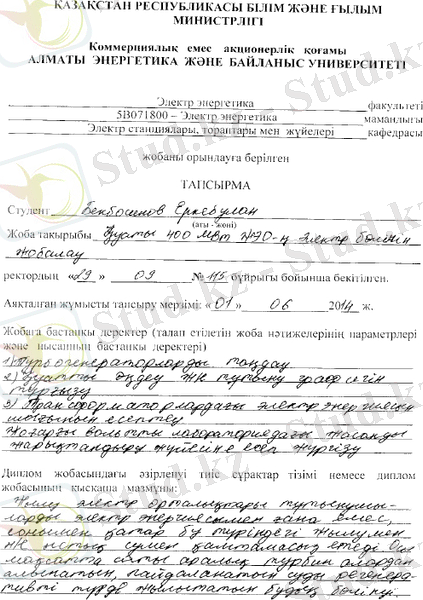 ҚАЗАҚСТАН РЕСПУБЛИКАСЫ БІЛІМ ЖӘНЕ ҒЫЛЫМ
МИНИСТРЛІГІ
Коммерциялық емес акционерлік қоғамы
АЛМАТЫ ЭНЕРГЕТИКА ЖӘНЕ БАЙЛАНЫС УНИВЕРСИТЕТІ
Электр энергетика факультеті
5В071800 – Электр энергетика мамандығы
Электр станциялары, тораптары мен жүйелері кафедрасы
жобаны орындауға берілген
ТАПСЫРМА
Студент Бекбосинов Еркебулан
(аты - жөні)
Жоба тақырыбы Қуаты 400 МВт ЖЭО-ң электр бөлімін
жобалау
ректордың «29» 09 № 115 бұйрығы бойынша бекітілген.
Аяқталған жұмысты тапсыру мерзімі: «01» 06 2014 ж.
Жобаға бастапқы деректер (талап етілетін жоба нәтижелерінің параметрлері
және нысанның бастапқы деректері)
1) Турбогенераторларды таңдау
2) Қуатты өндеу және тұтыну графигін
тұрғызу
3) Трансформаторлардағы электр энергиясын
шығынын есептеу
Жоғарғы вольтты лабораториядағы жасанды
жарықтандыру жүйесіне есеп жүргізу
Диплом жобасындағы әзірленуі тиіс сұрақтар тізімі немесе диплом
жобасының қысқаша мазмұны:
Жылу электр орталықтары тұтынушы-
ларды электр энергиясымен ғана емес,
сонымен қатар бу түріндегі жылумен
және ыстық сумен қамтамасыз етеді Осы
мақсатта аралық турбиналардан
алынатын, пайдаланатын суды регенера-
тивті түрде жылытатын будың бөлігі